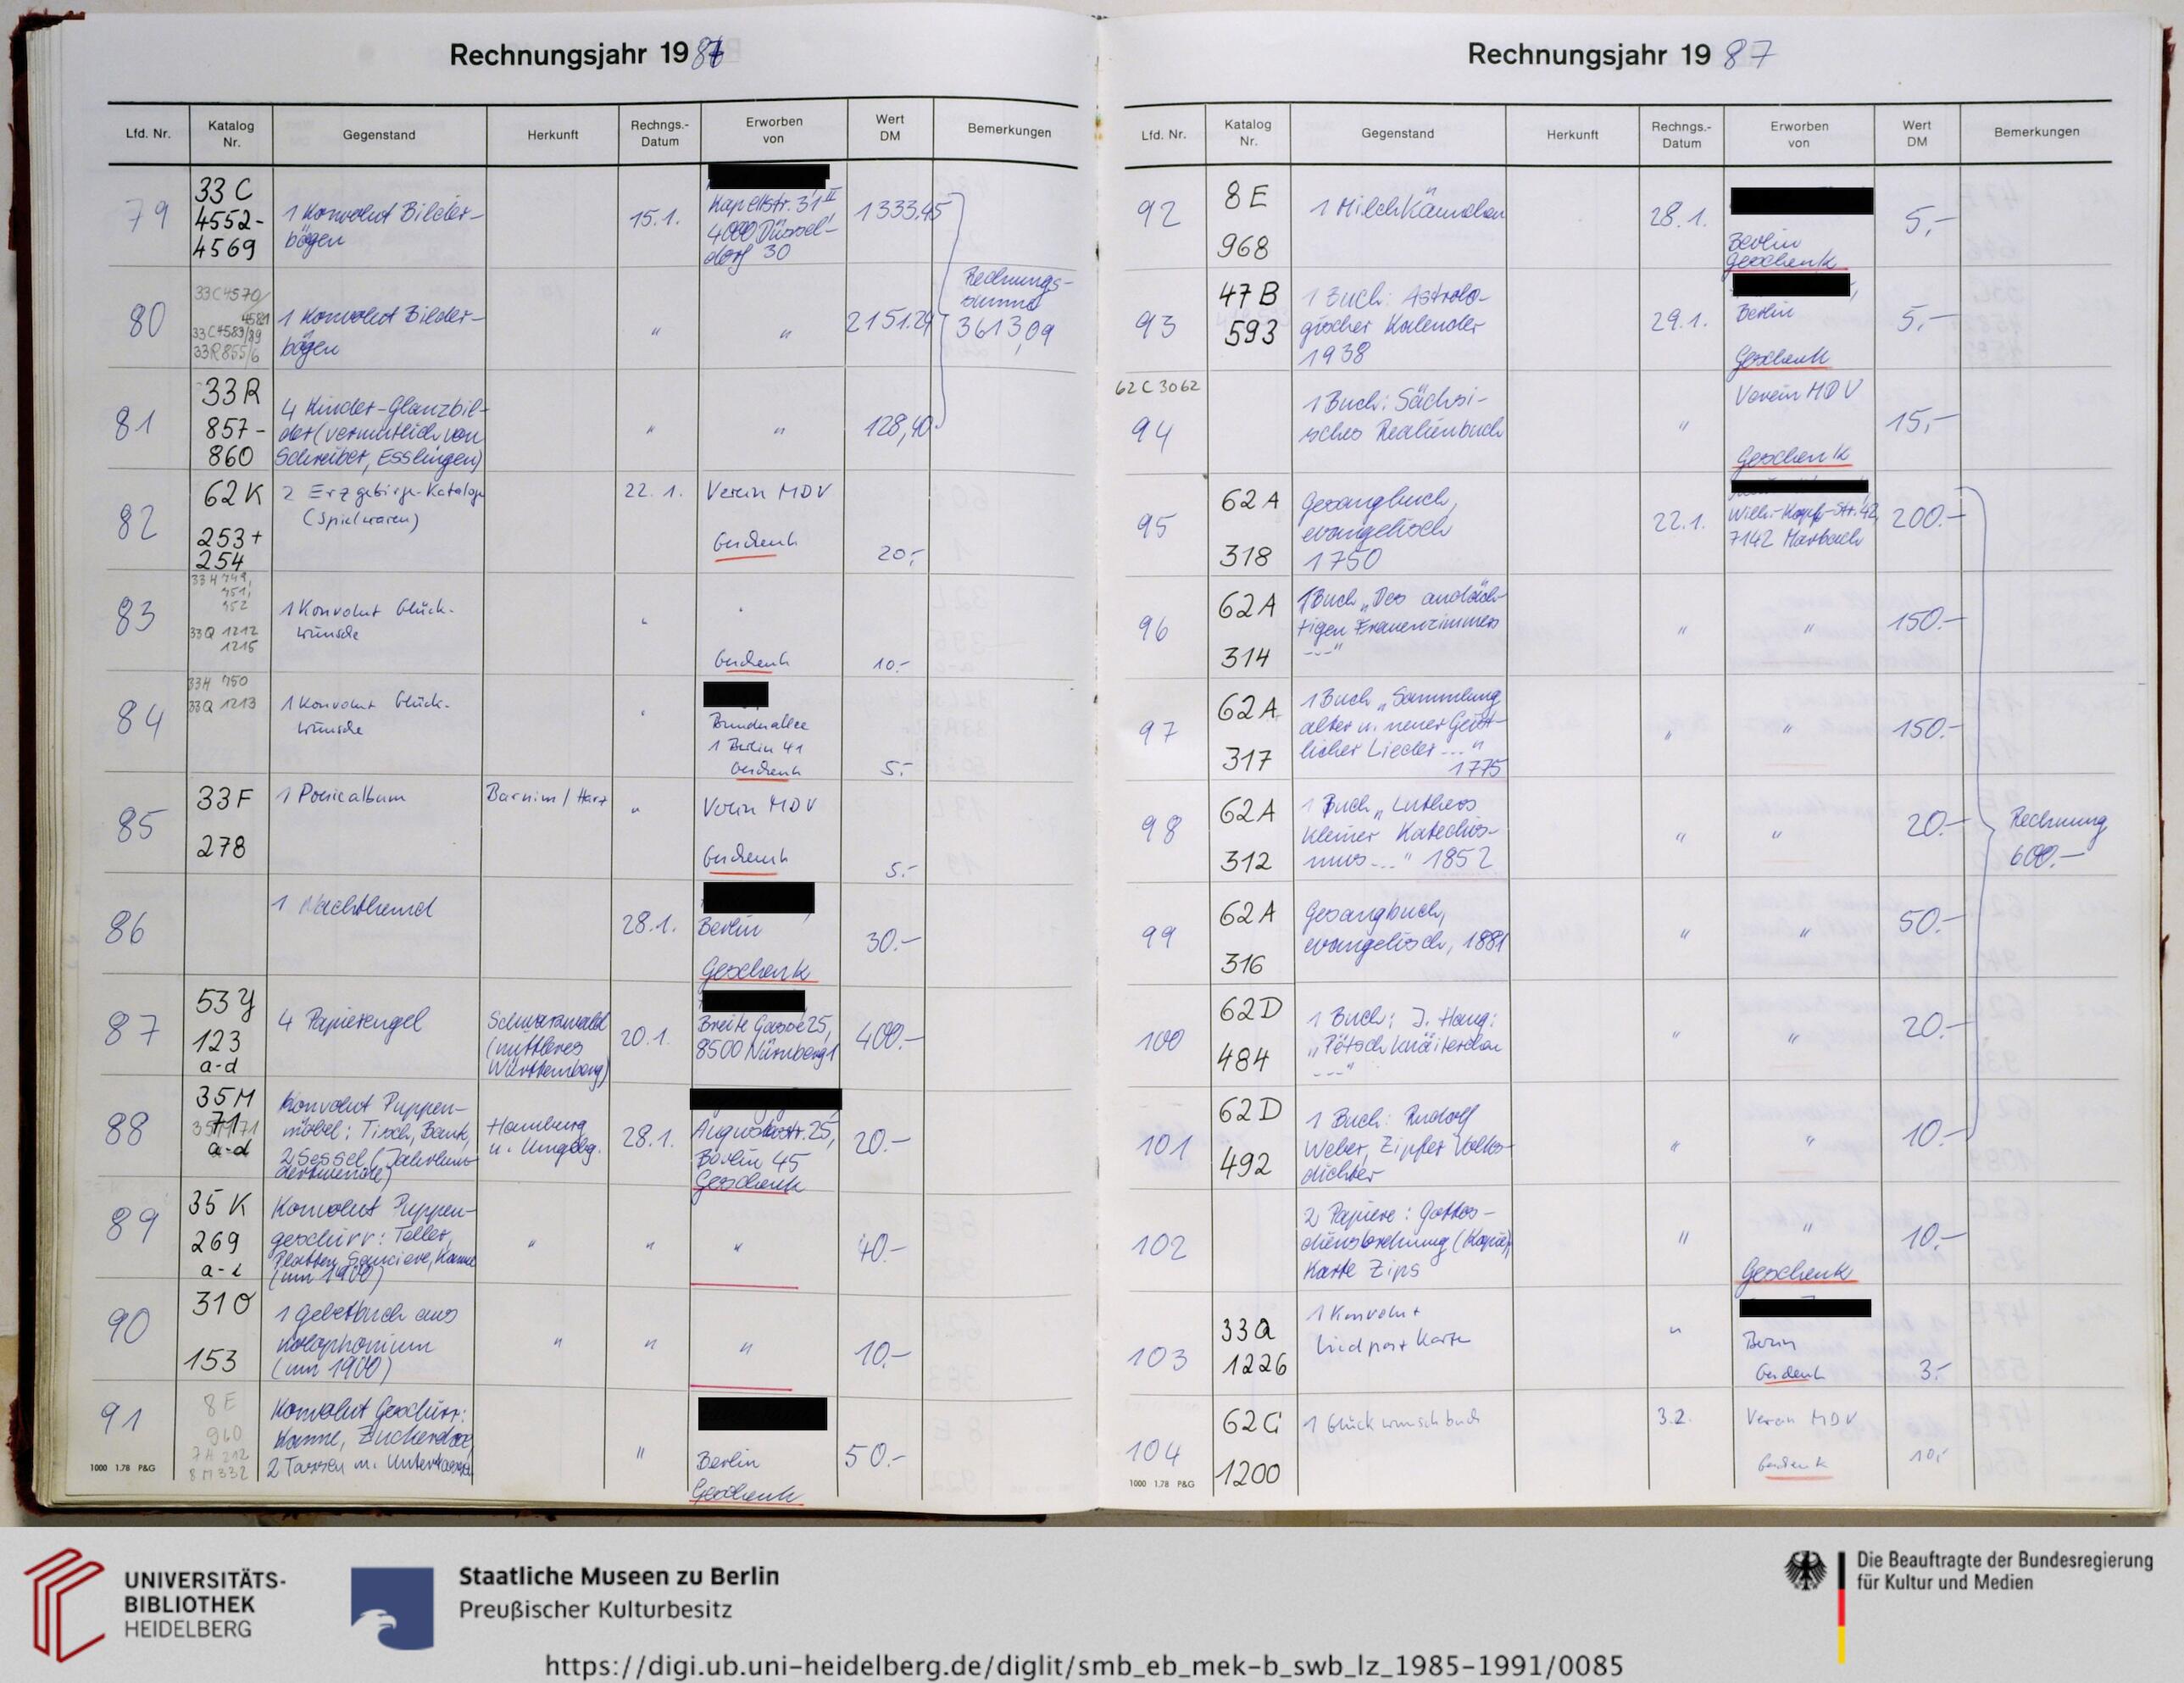 Rechnungsjahr 1987
Lfd. Nr. Katalog Nr. Gegenstand Herkunft Rechngs.-Datum Erworben von Wert DM Bemerkungen
79
33 C
4552-
4569
1 Konvolut Bilder-
bögen
15.1.
Kapellstr. 31 II
4000 Düssel-
dorf 30
1333.45
80
33C4570/
4581
33C4583/89
33R855/6
1 Konvolut Bilder-
bögen
"
"
2151.24
Rechnungs-
summe
3613,09
81
33R
857-
860
4 Kinder-Glanzbil-
der (vermutlich von
Schreiber, Esslingen)
"
"
128,40
82
62 K
253+
254
2 Erzgebirge-Kataloge
(Spielwaren)
22.1.
Verein MDV
Geschenk
20,-
83
33 H 749,
751,
752
33Q 1212
1215
1 Konvolut Glück-
wünsche
"
Geschenk
10.-
84
33H 750
33Q 1213
1 Konvolut Glück-
wünsche
"
Bundesallee
1 Berlin 41
Geschenk
5.-
85
33F
278
1 Poesiealbum
Barnim / Harz
"
Verein MDV
Geschenk
5.-
86
1 Nachthemd
28.1.
Berlin
Geschenk
30.-
87
53 Y
123
a-d
4 Papierengel
Schwarzwald
(mittleres
Württemberg)
20.1.
Breite Gasse 25,
8500 Nürnberg 1
400.-
88
35 M
71
a-d
Konvolut Puppen-
möbel: Tisch, Bank,
2 Sessel (Jahrhun-
dertwende)
Hamburg
u. Umgebg.
28.1.
Augustastr. 25,
Berlin 45
Geschenk
20.-
89
35 K
269
a-i
Konvolut Puppen-
geschirr: Teller,
Platten, Sauciere, Kanne
(um 1900)
"
"
"
40.-
90
31 O
153
1 Gebetbuch aus
Kolophonium
(um 1900)
"
"
"
10.-
91
8 E
960
7 A 212
8 M 332
Konvolut Geschirr:
Kanne, Zuckerdose,
2 Tassen m. Untertassen
"
Berlin
Geschenk
50.-
1000 1.78 P&G
Rechnungsjahr 1987
Lfd. Nr. Katalog Nr. Gegenstand Herkunft Rechngs.-Datum Erworben von Wert DM Bemerkungen
92
8 E
968
1 Milchkännchen
28.1.
Berlin
Geschenk
5,-
93
47 B
593
1 Buch: Astrolo-
gischer Kalender
1938
29.1.
Berlin
Geschenk
5,-
62 C 3062
94
1 Buch: Sächsi-
sches Realienbuch
"
Verein MDV
Geschenk
15,-
95
62 A
318
Gesangbuch,
evangelisch
1750
22.1.
Wilh.-Kopf-Str. 42,
7142 Marbach
200.-
96
62 A
314
1 Buch "Des andäch-
tigen Frauenzimmers
---"
"
"
150.-
97
62 A
317
1 Buch "Sammlung
alter u. neuer Geist-
licher Lieder ..."
1775
"
"
150.-
98
62 A
312
1 Buch "Luthers
Kleiner Katechis-
mus ..." 1852
"
"
20.-
Rechnung
600.-
99
62 A
316
Gesangbuch,
evangelisch, 1881
"
"
50.-
100
62 D
484
1 Buch: J. Hang:
"
"
20.-
101
62 D
492
1 Buch: Rudolf
Weber, Zipser Volks-
dichter
"
"
10.-
102
2 Papiere: Gottes-
dienstordnung (Kopie),
Karte Zips
"
"
Geschenk
10.-
103
33Q
1226
1 Konvolut
Liedpostkarten
"
Berlin
Geschenk
3.-
104
62 G
1200
1 Glückwunschbuch
3.2.
Verein MDV
Geschenk
10,-
1000 1.78 P&G
UNIVERSITÄTS-
BIBLIOTHEK
HEIDELBERG
Staatliche Museen zu Berlin
Preußischer Kulturbesitz
Die Beauftragte der Bundesregierung
für Kultur und Medien
https://digi.ub.uni-heidelberg.de/diglit/smb_eb_mek-b_swb_lz_1985-1991/0085